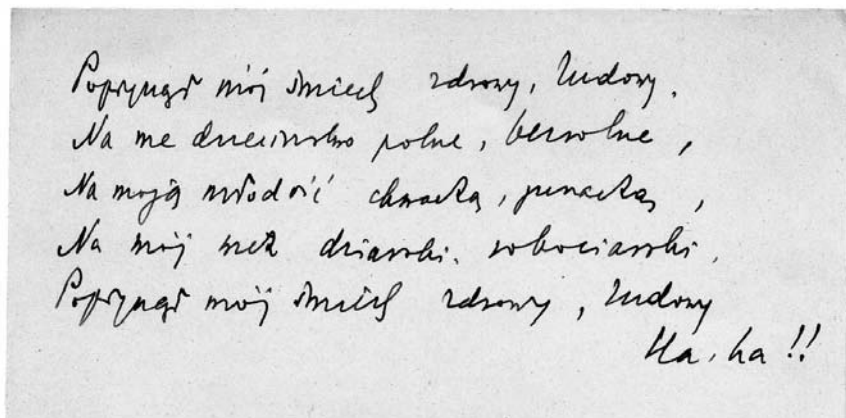 Poprzysiągł mój śmiech zdrowy, ludowy.
Na me dzieciństwo polne, bezwolne,
Na moją młodość chwacką, junacką,
Na mój wiek dziarski. sobociarski.
Poprzysiągł mój śmiech zdrowy, ludowy
Ha, ha!!